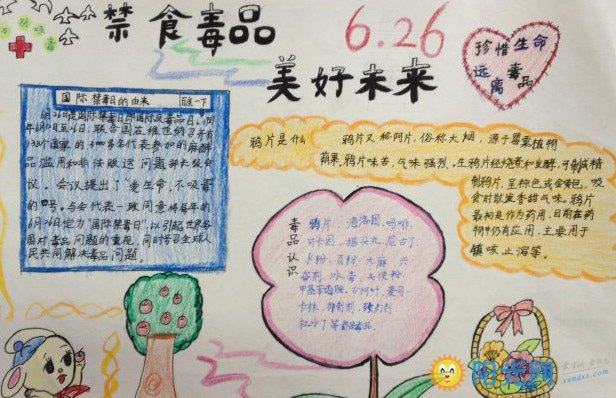 禁食毒品
6.26
美好未来
珍惜生命
远离毒品
国际禁毒日的由来
6月26日是国际禁毒日即国际反毒品日。1987
年6月12日至26日,联合国在维也纳召开有
138个国家的3000多名代表参加的麻醉
品滥用和非法贩运问题部长级会
议。会议提出了"爱生命,不吸毒
的口号。与会代表一致同意将每年的
6月26日定为"国际禁毒日",以引起世界各
国对毒品问题的重视,同时号召全球人
民共同解决毒品问题。
鸦片是什么
鸦片又称阿片,俗称大烟,源于罂粟植物
蒴果,鸦片味苦,气味强烈。生鸦片经烧煮和发酵,可制成精
制鸦片,呈棕色或金黄色。吸
食时散发香甜气味。鸦片
最初是作为药用,目前在药
物中仍有应用,主要用于
镇咳、止泻等。
毒品认识
鸦片、海洛因、吗啡、
可卡因、摇头丸、尼古丁、
卡粉、
大麻、
冰毒、
阳光网
xundxs.com